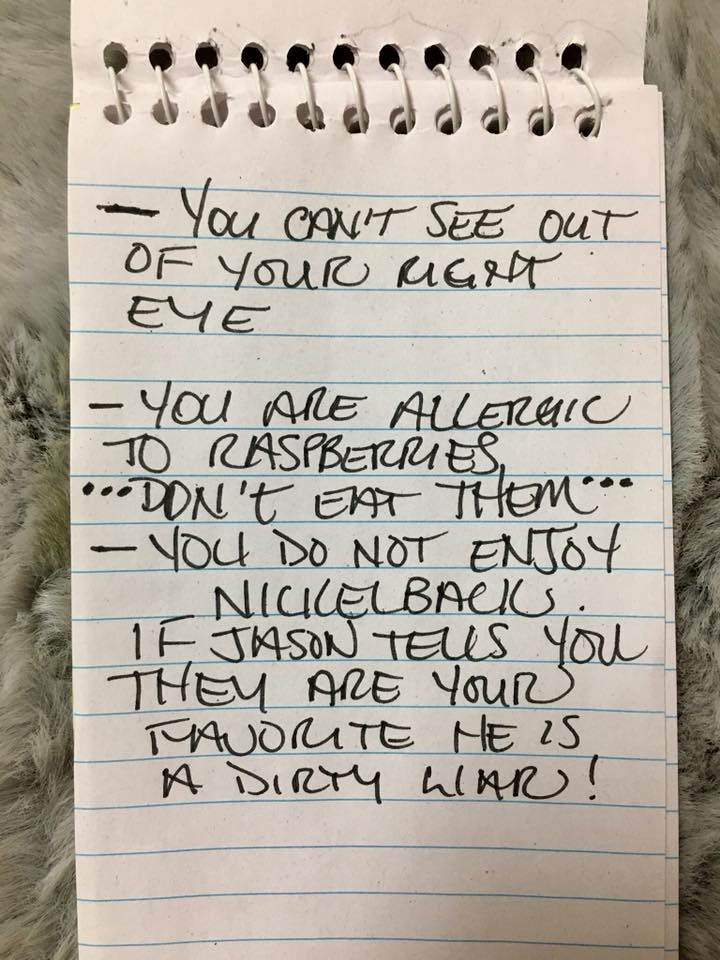 — You CAN'T SEE OUT
OF YOUR RIGHT
EYE
— YOU ARE ALLERGIC
TO RASPBERRIES
•••DON'T EAT THEM•••
— YOU DO NOT ENJOY
NICKELBACK.
IF JASON TELLS YOU
THEY ARE YOUR
FAVORITE HE IS
A DIRTY LIAR!